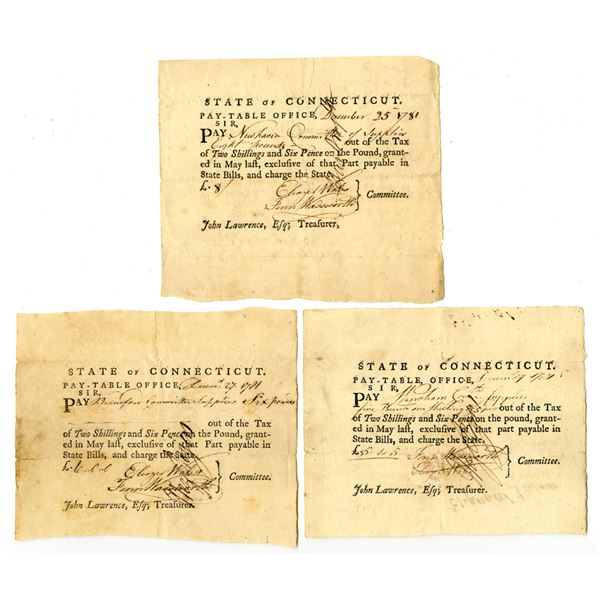 STATE OF CONNECTICUT.
PAY-TABLE OFFICE, December 25 1781
SIR,
PAY Newhaven Committee of Supplies
Eight pounds out of the Tax
of Two Shillings and Six Pence on the Pound, grant-
ed in May last, exclusive of that Part payable in
State Bills, and charge the State.
£.8
Eleazr Wales
Fenn Wadsworth } Committee.
John Lawrence, Esq; Treasurer,
STATE OF CONNECTICUT.
PAY-TABLE OFFICE, Decemr. 27. 1781
SIR,
PAY Committee Supplies Six pounds
out of the Tax
of Two Shillings and Six Pence on the Pound, grant-
ed in May last, exclusive of that part payable in
State Bills, and charge the State.
Eleazr Wales
Fenn Wadsworth } Committee.
John Lawrence, Esq; Treasurer.
STATE OF CONNECTICUT.
PAY-TABLE OFFICE,
SIR,
PAY Windham
five Pounds out of the Tax
of Two Shillings and Six Pence on the pound, grant-
ed in May last, exclusive of that part payable in
State Bills, and charge the State.
Fenn Wadsworth
Eleazr Wales } Committee.
John Lawrence, Esq; Treasurer.